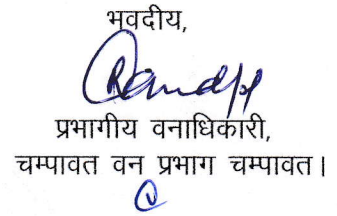 भवदीय,
प्रभागीय वनाधिकारी,
चम्पावत वन प्रभाग चम्पावत।